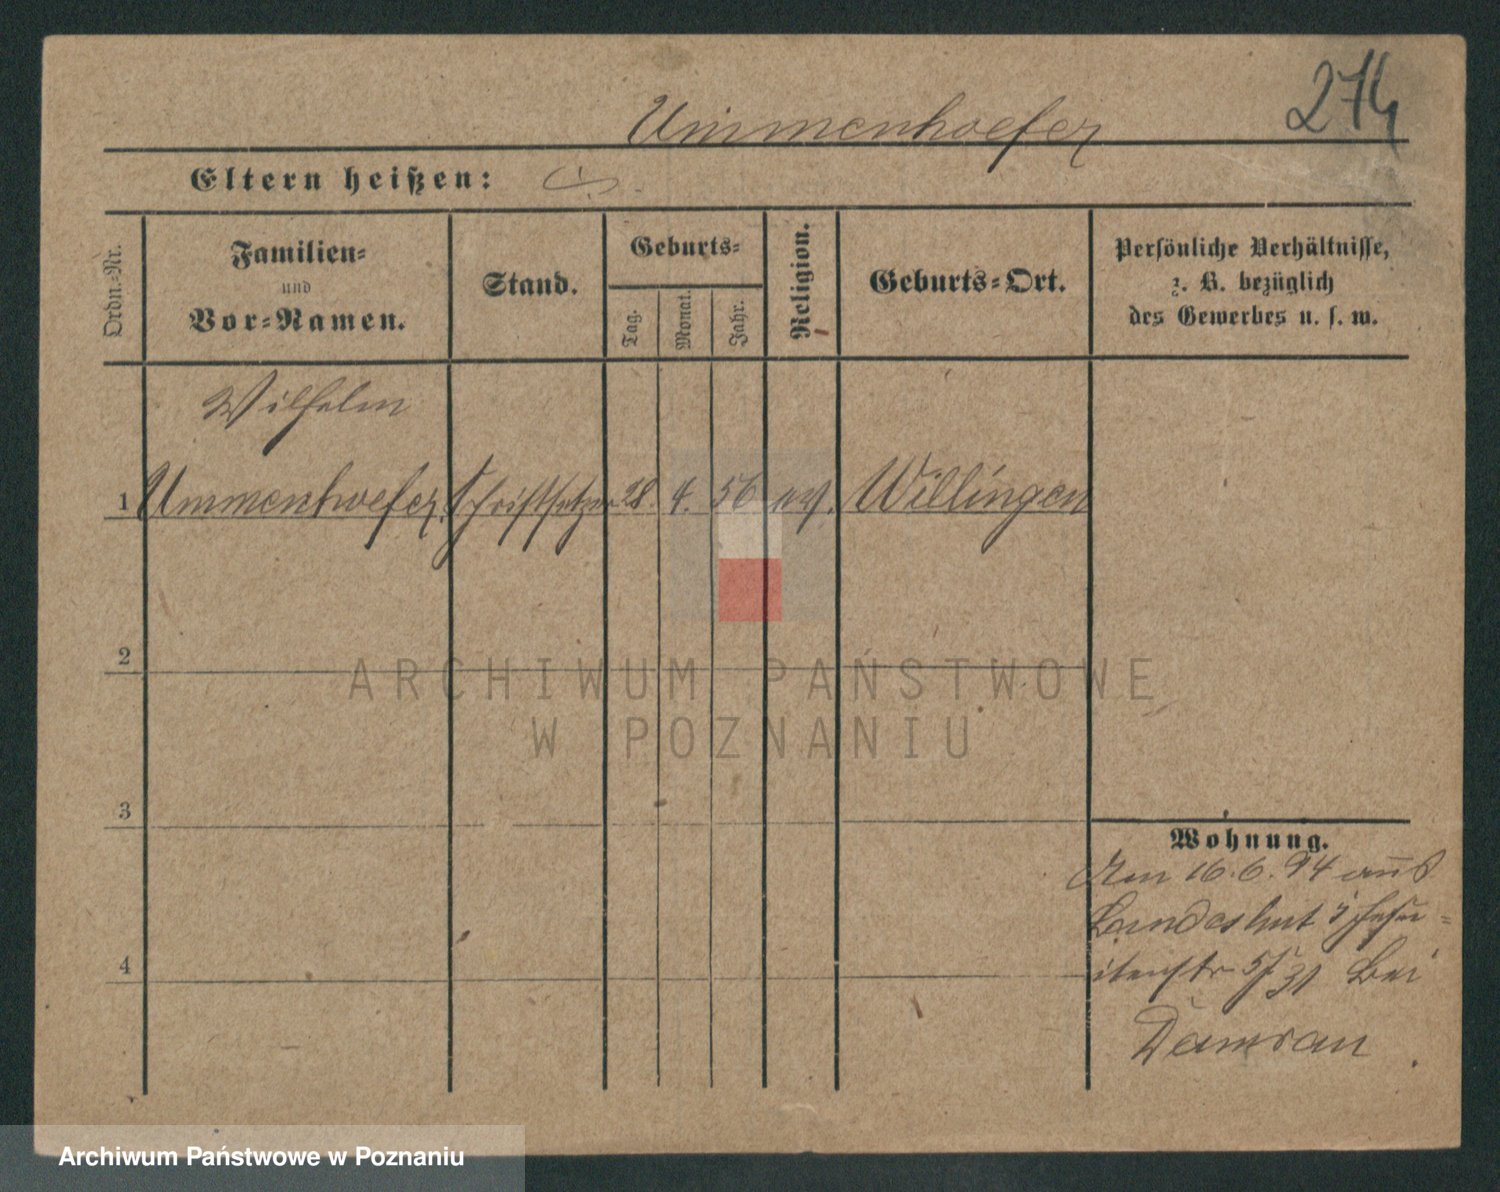 274
Ummenhoefer
Eltern heißen:
Ordn.-Nr.
Familien-
und
Vor-Namen.
Stand.
Geburts-
Tag.
Monat.
Jahr.
Religion.
Geburts-Ort.
Persönliche Verhältnisse,
z. B. bezüglich
des Gewerbes u. s. w.
Wilhelm
1 Ummenhoefer Schriftsetzer 28. 4. 56 ev. Willingen
2
3
4
ARCHIWUM PAŃSTWOWE
W POZNANIU
Wohnung.
Am 16.6.94 aus
Landeshut Jesu-
itenstr 5/ bei
Damrau
Archiwum Państwowe w Poznaniu